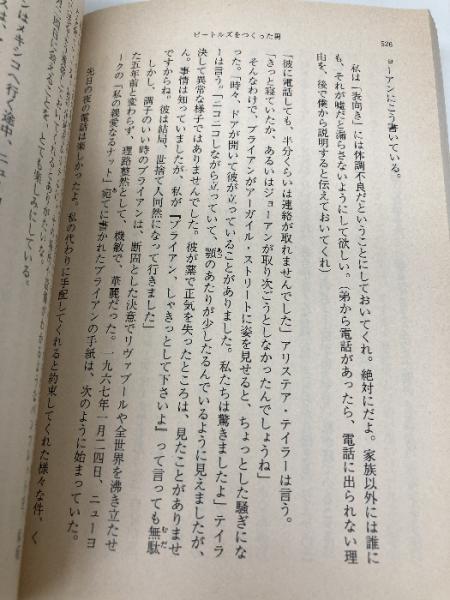 ビートルズをつくった男
526
ョーアンにこう書いている。
私は「表向き」には体調不良だということにしておいてくれ。絶対にだよ。家族以外には誰に
も、それが嘘だと漏らさないようにして欲しい。（弟から電話があったら、電話に出られない理
由を、後で僕から説明すると伝えておいてくれ）
「彼に電話しても、半分くらいは連絡が取れませんでした」アリステア・テイラーは言う。
「きっと寝ていたか、あるいはジョーアンが取り次ごうとしなかったんでしょうね」
そんなわけで、ブライアンがアーガイル・ストリートに姿を見せると、ちょっとした騒ぎにな
った。「時々、ドアが開いて彼が立っていることがありました。私たちは驚きましたよ」テイラ
ーは言う。「ニコニコしながら立っていて、顎のあたりが少したるんでいるように見えましたが、
決して異常な様子ではありませんでした。彼が薬で正気を失ったところは、見たことがありませ
ん。事情は知っていましたが、私が『ブライアン、しゃきっとして下さいよ』って言っても無駄
ですからね。彼は結局、世捨て人同然になって行きました」
しかし、調子のいい時のブライアンは、断固とした決意でリヴァプールや全世界を沸き立たせ
た五年前と変わらず、理路整然として、機敏で、華麗だった。一九六七年一月二四日、ニューヨ
ークの「私の親愛なるナット」宛てに書かれたブライアンの手紙は、次のように始まっていた。
先日の夜の電話は楽しかったよ。私の代わりに手配してくれると約束してくれた様々な件、く
とても楽しみにしている。
ンはメキシコへ行く途中、ニュー